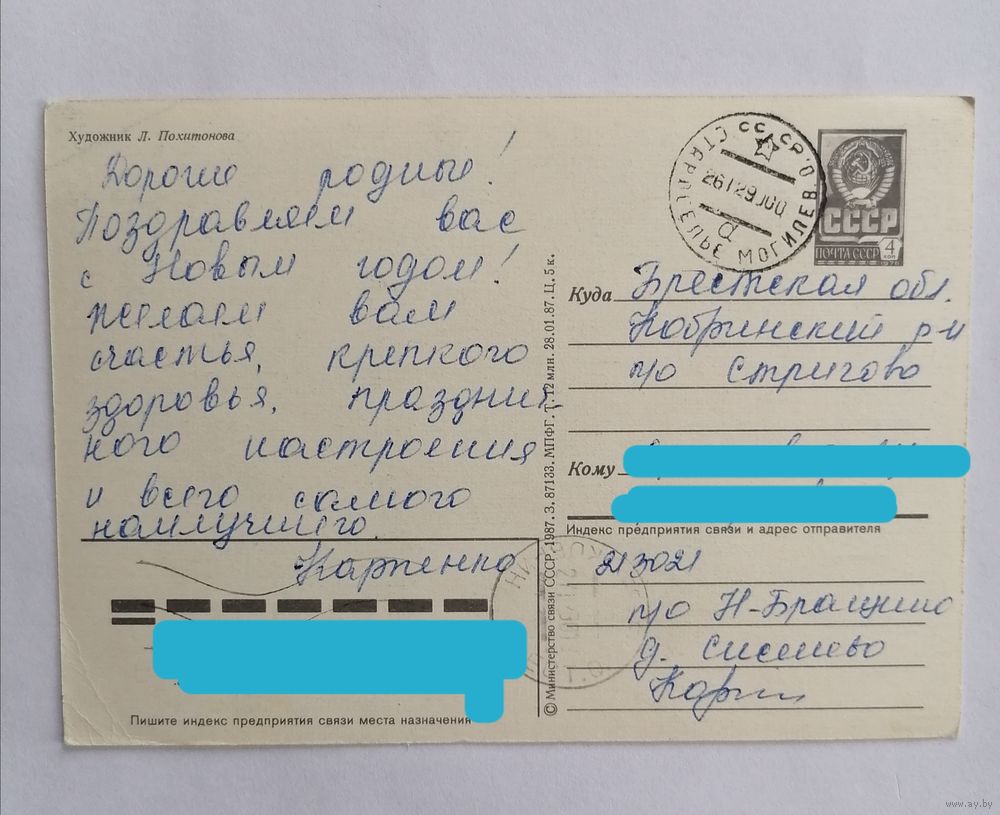 Художник Л. Похитонова
Дорогие родные!
Поздравляем вас
с Новым годом!
желаем вам
счастья, крепкого
здоровья, праздничного
ного настроения
и всего самого
наилучшего.
Карпенко
Пишите индекс предприятия связи места назначения
© Министерство связи СССР, 1987. З. 87133. МПФГ. Т. 12 млн. 28.01.87. Ц. 5 к.
СССР
СТАРОСЕЛЬЕ МОГИЛЕВ. О.
СССР
ПОЧТА СССР
4 коп
Куда Брестская обл.
Кобринский р-н
п/о Стригово
Кому
Индекс предприятия связи и адрес отправителя
213021
п/о Н-Браги
д.
www.ay.by